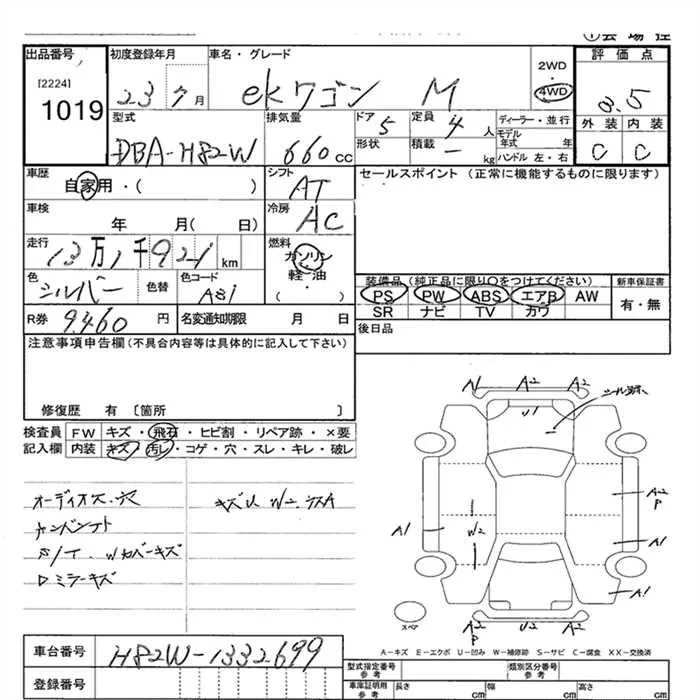 出品番号 初度登録年月 車名・グレード 評価点
[2224]
1019
23 7月 ekワゴン M
2WD
4WD
3.5
外装 内装
C C
型式 排気量 ドア 定員 ディーラー・並行
DBA-H82W 660cc 5 4人
モデル年式 年
形状 積載 ハンドル 左・右
kg
車歴 シフト セールスポイント (正常に機能するものに限ります)
自家用・( ) AT
車検 冷房
年 月( 日) AC
走行 燃料
13万1千921km ガソリン
軽・油
( )
色 色替 色コード
シルバー A31
装備品(純正品に限り○をつけてください) 新車保証書
PS PW ABS エアB AW
SR ナビ TV カワ
有・無
R券 9,460円 名変通知期限 月 日
後日品
注意事項申告欄(不具合内容等は具体的に記入して下さい)
修復歴 有 [箇所 ]
検査員 FW キズ・飛石・ヒビ割・リペア跡・×要
記入欄 内装 キズ・汚レ・コゲ・穴・スレ・キレ・破レ
オーディオス.穴 キズU W2.
S/T. Wカバーキズ
ロミラーキズ
A1 A2 A2
U1
A2
P
A1 W2 A1
A1
A2
P
U2 A2
スペア
A-キズ E-エクボ U-凹み W-補修跡 S-サビ C-腐食 XX-交換済
車台番号 H82W-1332699
登録番号
型式指定番号 参考 類別区分番号 参考
車庫証明用 参考 長さ cm 幅 cm 高さ cm